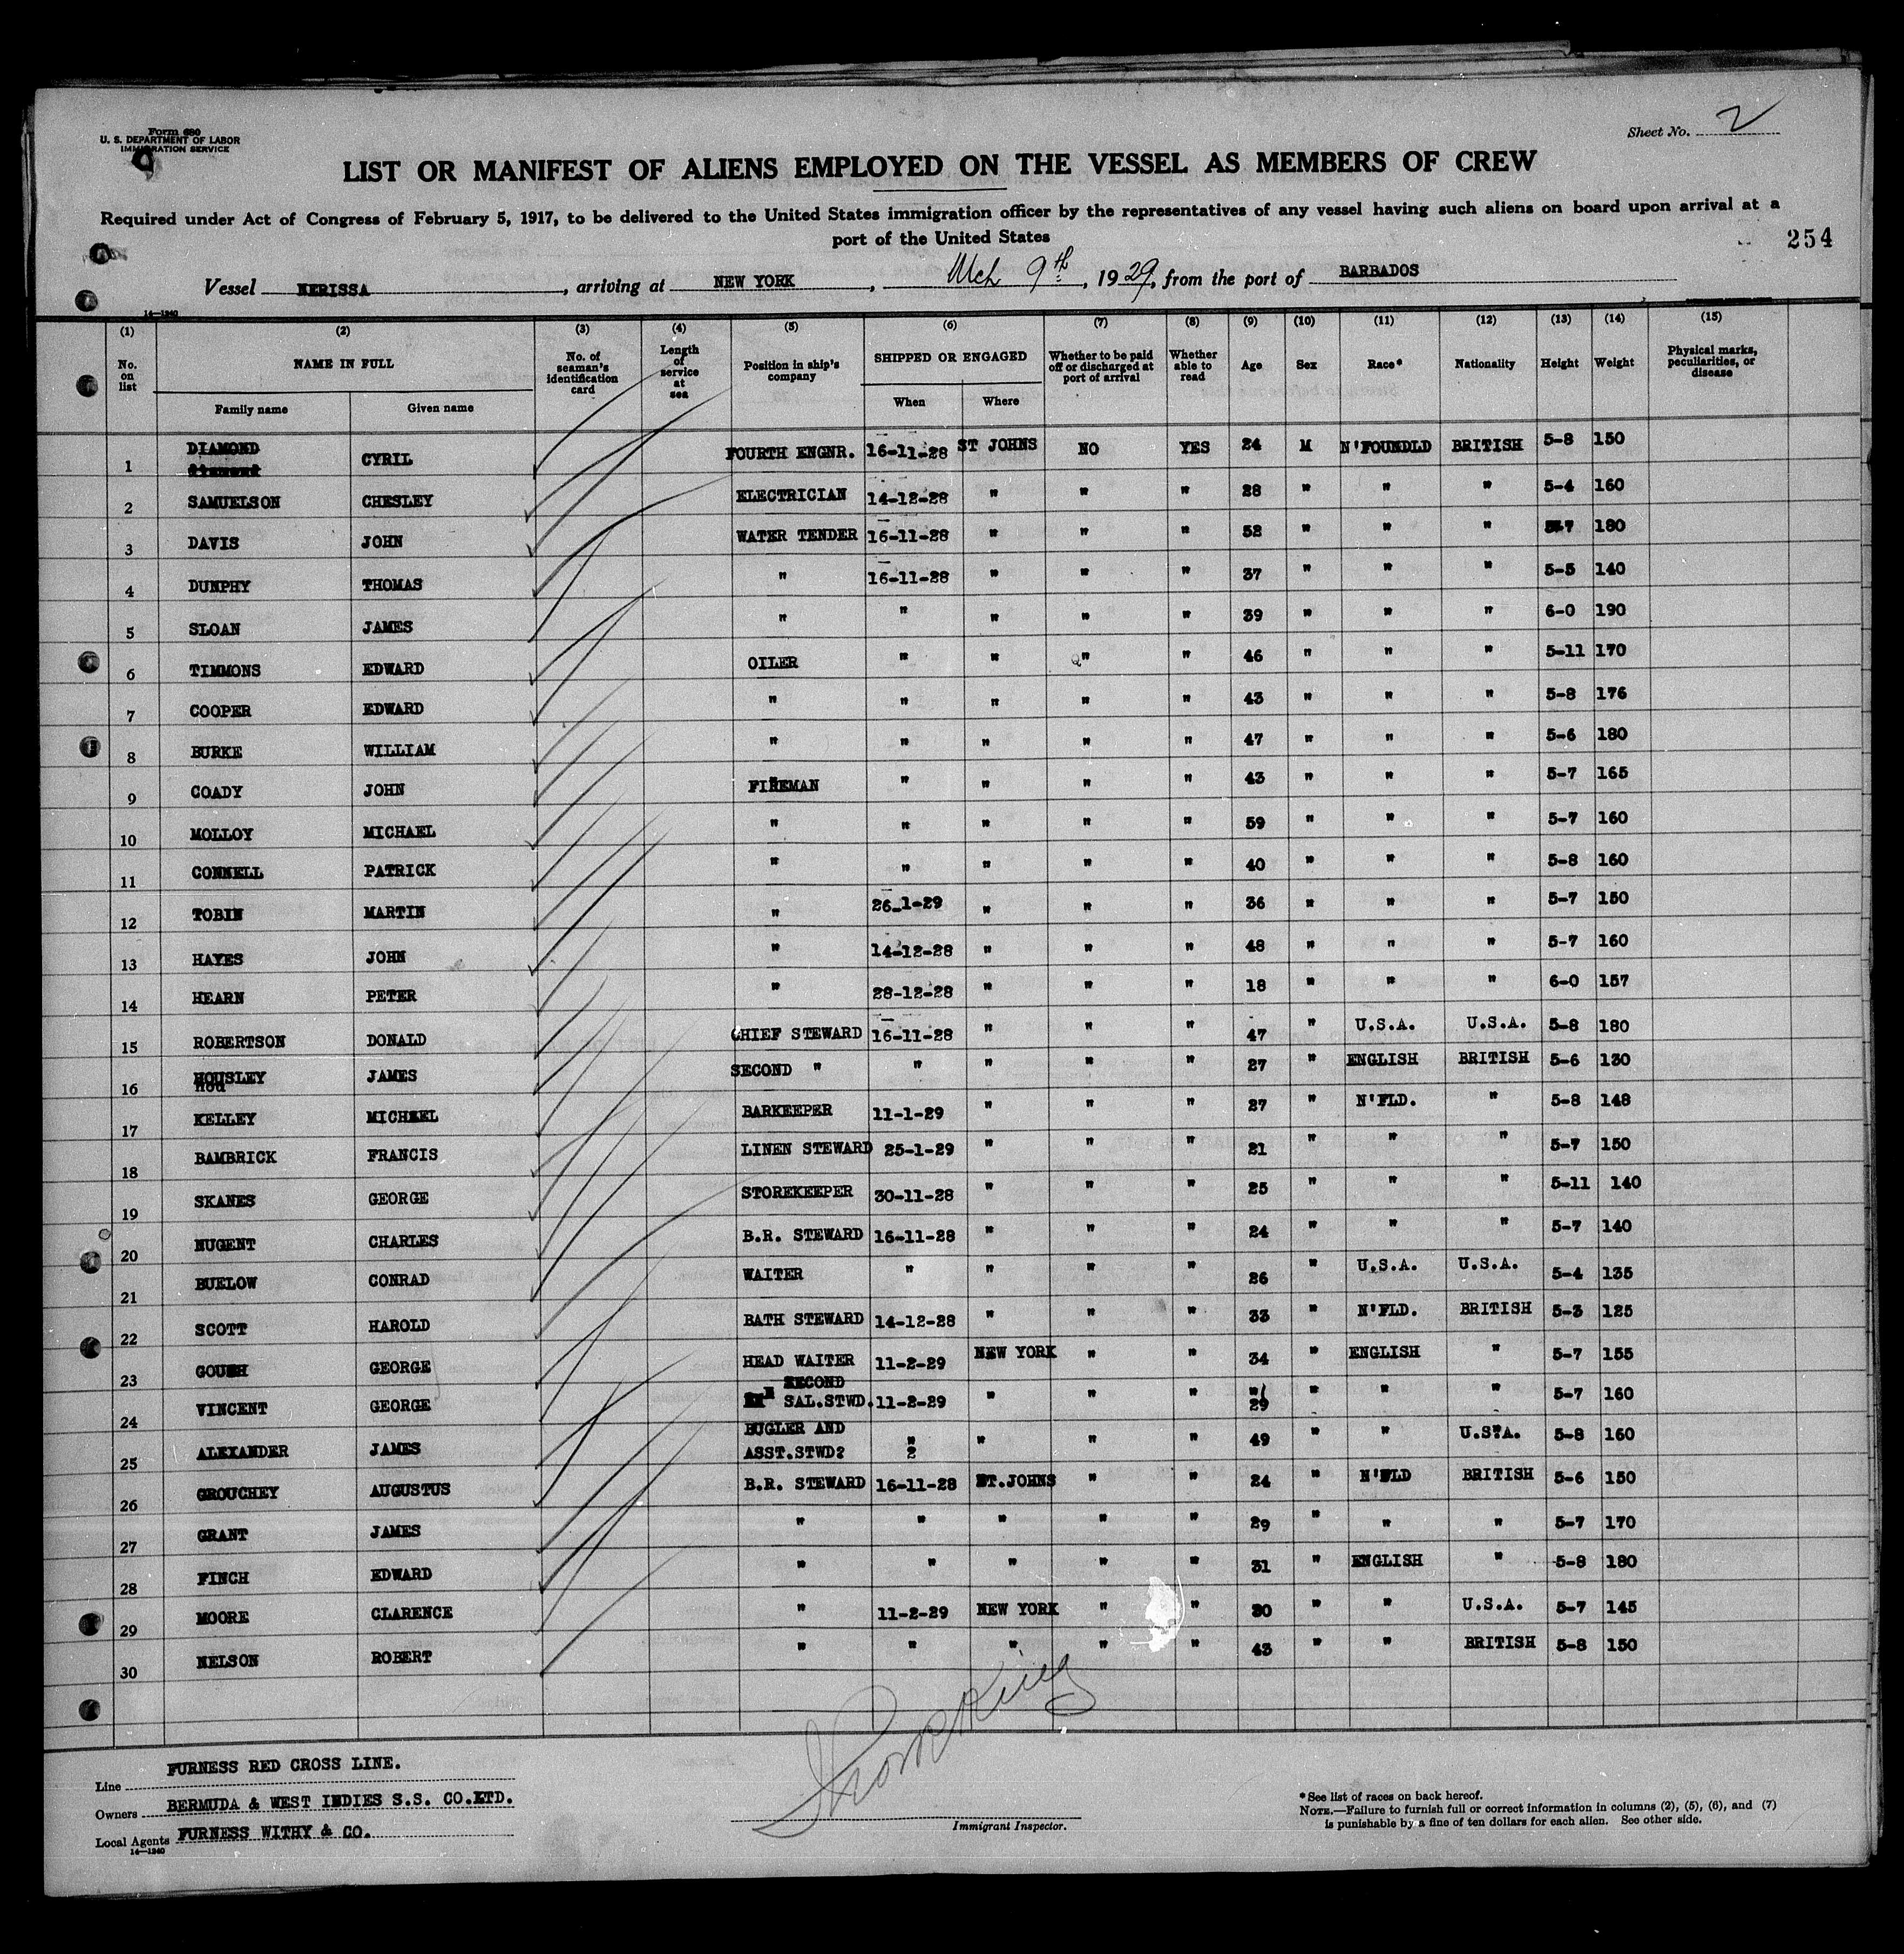 Form 680
U. S. DEPARTMENT OF LABOR
IMMIGRATION SERVICE
Sheet No. 2
LIST OR MANIFEST OF ALIENS EMPLOYED ON THE VESSEL AS MEMBERS OF CREW
Required under Act of Congress of February 5, 1917, to be delivered to the United States immigration officer by the representatives of any vessel having such aliens on board upon arrival at a
port of the United States
254
Vessel NERISSA, arriving at NEW YORK, Mch 9th, 1929, from the port of BARBADOS
14—1240
(1) (2) (3) (4) (5) (6) (7) (8) (9) (10) (11) (12) (13) (14) (15)
No. on list NAME IN FULL No. of seaman's identification card Length of service at sea Position in ship's company SHIPPED OR ENGAGED Whether to be paid off or discharged at port of arrival Whether able to read Age Sex Race* Nationality Height Weight Physical marks, peculiarities, or disease
Family name Given name When Where
1 DIAMOND CYRIL FOURTH ENGNR. 16-11-28 ST JOHNS NO YES 24 M N'FOUNDLD BRITISH 5-8 150
2 SAMUELSON CHESLEY ELECTRICIAN 14-12-28 " " " 28 " " " 5-4 160
3 DAVIS JOHN WATER TENDER 16-11-28 " " " 52 " " " 7 180
4 DUNPHY THOMAS " 16-11-28 " " " 37 " " " 5-5 140
5 SLOAN JAMES " " " " " 39 " " " 6-0 190
6 TIMMONS EDWARD OILER " " " " 46 " " " 5-11 170
7 COOPER EDWARD " " " " " 43 " " " 5-8 176
8 BURKE WILLIAM " " " " " 47 " " " 5-6 180
9 COADY JOHN FIREMAN " " " " 43 " " " 5-7 165
10 MOLLOY MICHAEL " " " " " 59 " " " 5-7 160
11 CONNELL PATRICK " " " " " 40 " " " 5-8 160
12 TOBIN MARTIN " 26-1-29 " " " 36 " " " 5-7 150
13 HAYES JOHN " 14-12-28 " " " 48 " " " 5-7 160
14 HEARN PETER " 28-12-28 " " " 18 " " " 6-0 157
15 ROBERTSON DONALD CHIEF STEWARD 16-11-28 " " " 47 " U.S.A. U.S.A. 5-8 180
16 HOUSLEY JAMES SECOND " " " " " 27 " ENGLISH BRITISH 5-6 130
Hou
17 KELLEY MICHAEL BARKEEPER 11-1-29 " " " 27 " N'FLD. " 5-8 148
18 BAMBRICK FRANCIS LINEN STEWARD 25-1-29 " " " 21 " " " 5-7 150
19 SKANES GEORGE STOREKEEPER 30-11-28 " " " 25 " " " 5-11 140
20 NUGENT CHARLES B.R. STEWARD 16-11-28 " " " 24 " " " 5-7 140
21 BUELOW CONRAD WAITER " " " " 26 " U.S.A. U.S.A. 5-4 135
22 SCOTT HAROLD BATH STEWARD 14-12-28 " " " 33 " N'FLD. BRITISH 5-3 125
23 GOUGH GEORGE HEAD WAITER 11-2-29 NEW YORK " " 34 " ENGLISH " 5-7 155
24 VINCENT GEORGE SECOND SAL.STWD. 11-2-29 " " " 29 " " " 5-7 160
25 ALEXANDER JAMES BUGLER AND ASST.STWD? " 2 " " " 49 " " U.S.A. 5-8 160
26 GROUCHEY AUGUSTUS B.R. STEWARD 16-11-28 ST.JOHNS " " 24 " N'FLD BRITISH 5-6 150
27 GRANT JAMES " " " " " 29 " " " 5-7 170
28 FINCH EDWARD " " " " " 31 " ENGLISH " 5-8 180
29 MOORE CLARENCE " 11-2-29 NEW YORK " " 30 " " U.S.A. 5-7 145
30 NELSON ROBERT " " " " " 43 " " BRITISH 5-8 150
Line FURNESS RED CROSS LINE.
Owners BERMUDA & WEST INDIES S.S. CO.LTD.
Local Agents FURNESS WITHY & CO.
14—1240
Immigrant Inspector.
* See list of races on back hereof.
NOTE.—Failure to furnish full or correct information in columns (2), (5), (6), and (7)
is punishable by a fine of ten dollars for each alien. See other side.